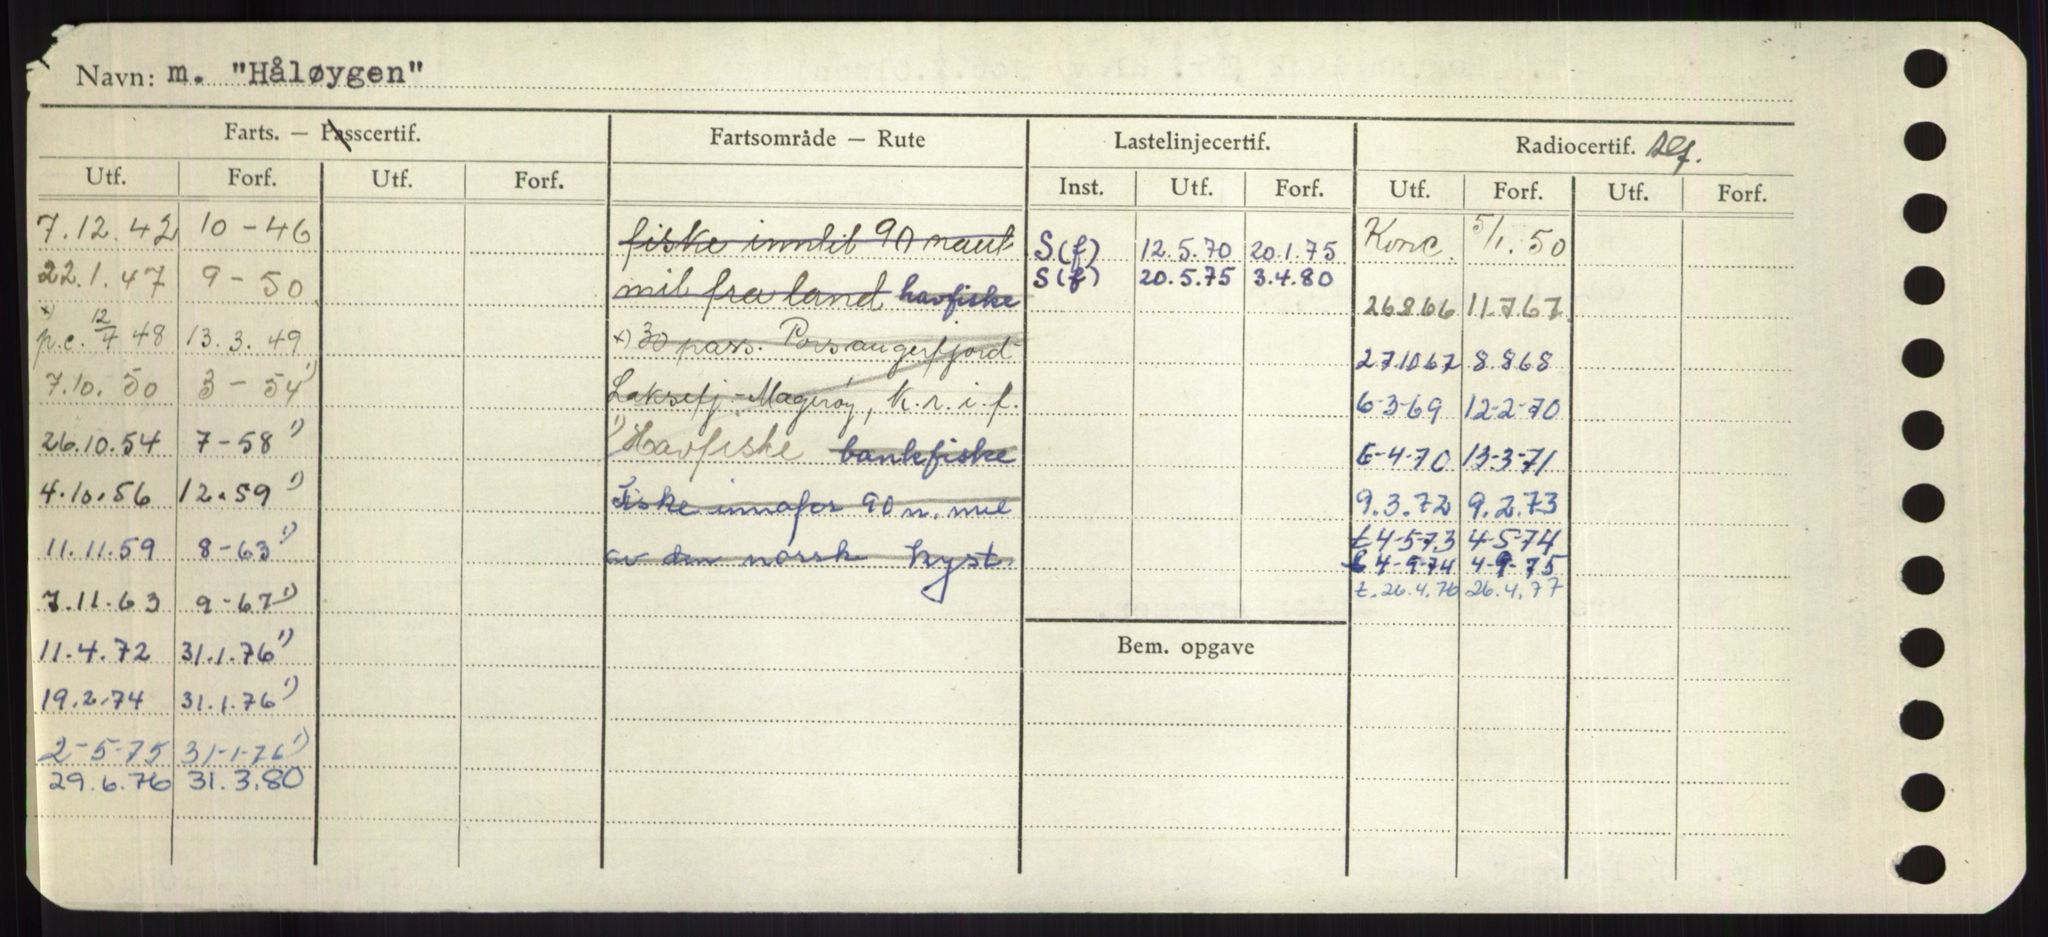 Navn: m. "Håløygen"
Farts. — Passcertif. Fartsområde — Rute Lastelinjecertif. Radiocertif.
Utf. Forf. Utf. Forf. Inst. Utf. Forf. Utf. Forf. Utf. Forf.
7.12.42 10-46 fiske inntil 90 naut S(f) 12.5.70 20.1.75 Konc. 5/1.50
22.1.47 9-50 mil fra land havfiske S(f) 20.5.75 3.4.80 26866 11.767
x) p.c. 12/7 48 13.3.49 x) 30 pass. Porsangerfjord- 271067 8.868
7.10.50 3-54 1) Laksefj.-Magerøy, k.r.i.f. 6-3-69 12-2-70
26.10.54 7-58 1) 1) Havfiske bankfiske 6-4-70 13-3-71
4.10.56 12.59 1) Fiske innafor 90 n. mil 9.3.72 9.2.73
11.11.59 8-63 1) av den norsk kyst t 4-573 4-5-74
t 4-9-74 4-9-75
7.11.63 9-67 1) t. 26.4.76 26.4.77
Bem. opgave
11.4.72 31.1.76 1)
19.2.74 31.1.76 1)
2-5-75 31-1-76 1)
29.6.76 31.3.80